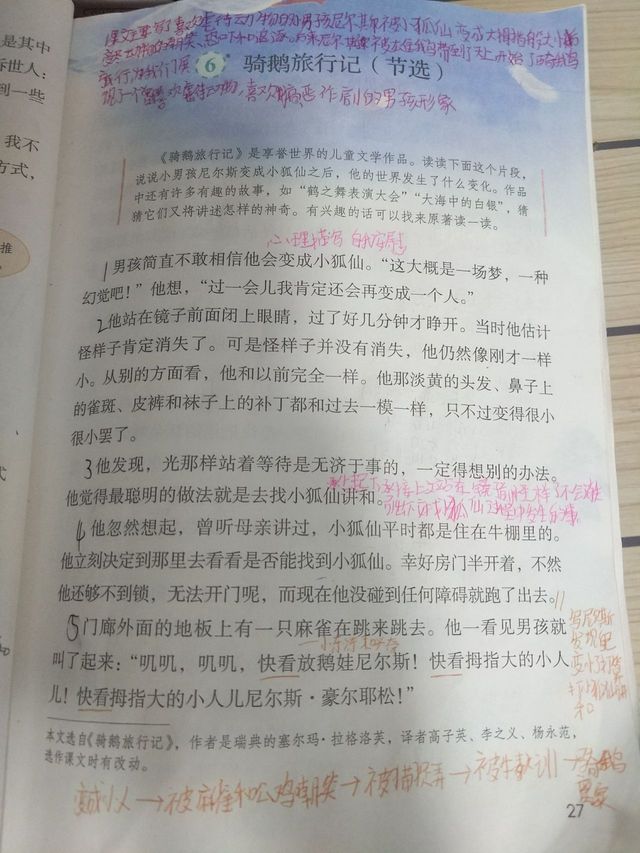 是其中
诉世人：
到一些
我不
方式，
推
式
课文主要写了喜欢虐待动物的男孩尼尔斯被小狐仙变成大拇指般大小
6 骑鹅旅行记（节选）
动物，喜欢恶作剧的男孩形象
《骑鹅旅行记》是享誉世界的儿童文学作品。读读下面这个片段，
说说小男孩尼尔斯变成小狐仙之后，他的世界发生了什么变化。作品
中还有许多有趣的故事，如“鹤之舞表演大会”“大海中的白银”，猜
猜它们又将讲述怎样的神奇。有兴趣的话可以找来原著读一读。
心理描写 自我安慰
1男孩简直不敢相信他会变成小狐仙。“这大概是一场梦，一种
幻觉吧！”他想，“过一会儿我肯定还会再变成一个人。”
2他站在镜子前面闭上眼睛，过了好几分钟才睁开。当时他估计
怪样子肯定消失了。可是怪样子并没有消失，他仍然像刚才一样
小。从别的方面看，他和以前完全一样。他那淡黄的头发、鼻子上
的雀斑、皮裤和袜子上的补丁都和过去一模一样，只不过变得很小
很小罢了。
3他发现，光那样站着等待是无济于事的，一定得想别的办法。
他觉得最聪明的做法就是去找小狐仙讲和。
4他忽然想起，曾听母亲讲过，小狐仙平时都是住在牛棚里的。
他立刻决定到那里去看看是否能找到小狐仙。幸好房门半开着，不然
他还够不到锁，无法开门呢，而现在他没碰到任何障碍就跑了出去。
5门廊外面的地板上有一只麻雀在跳来跳去。他一看见男孩就
叫了起来：“叽叽，叽叽，快看放鹅娃尼尔斯！快看拇指大的小人
儿！快看拇指大的小人儿尼尔斯·豪尔耶松！”
写尼尔斯
发现
变小
和
本文选自《骑鹅旅行记》，作者是瑞典的塞尔玛·拉格洛芙，译者高子英、李之义、杨永范，
选作课文时有改动。
变成小人→被麻雀和公鸡嘲笑→被猫捉弄→被牛教训→骑鹅
离家
27